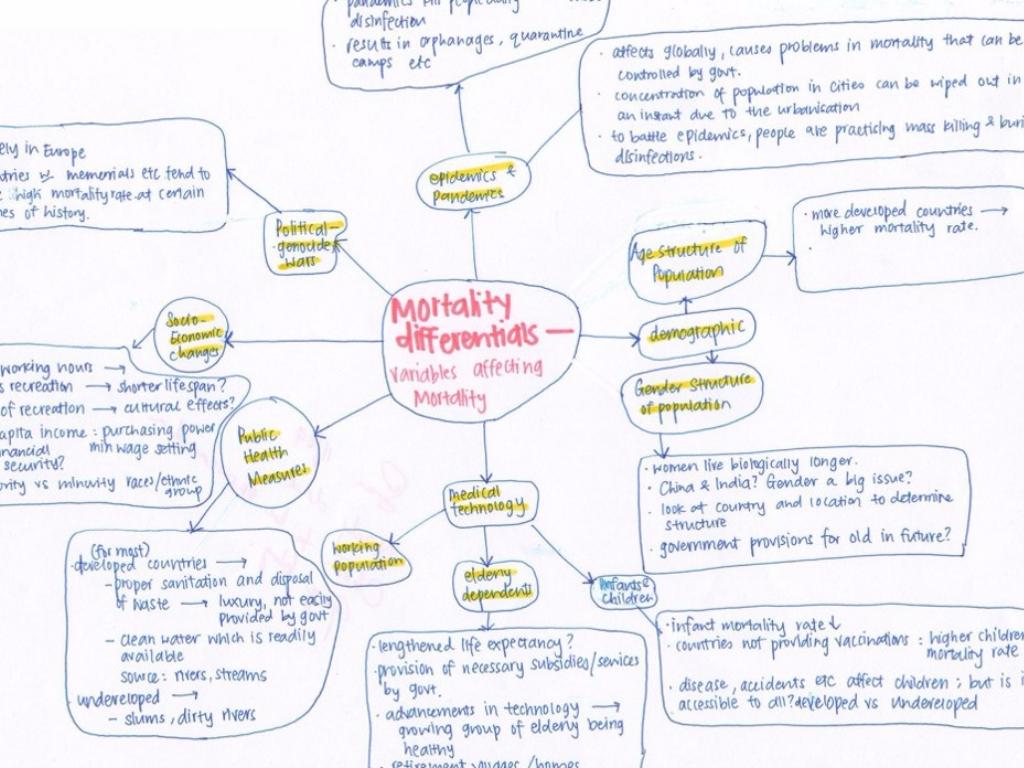 disinfection
· results in orphanages, quarantine
camps etc
· affects globally, causes problems in mortality that can be
controlled by govt.
· concentration of population in cities can be wiped out in
an instant due to the urbanisation
· to battle epidemics, people are practicing mass killing &
disinfections.
epidemics &
pandemics
ely in Europe
memorials etc tend to
high mortality rate at certain
of history.
Political –
genocide,
wars
Age structure of
Population
· more developed countries →
higher mortality rate.
·
Mortality
differentials —
variables affecting
Mortality
demographic
Gender structure
of population
· women live biologically longer.
· China & India? Gender a big issue?
· look at country and location to determine
structure
· government provisions for old in future?
Socio-
Economic
changes
working hours →
s recreation → shorter lifespan?
of recreation → cultural effects?
apita income : purchasing power
nancial min wage setting
security?
ority vs minority races/ethnic
group
Public
Health
Measures
(for most)
· developed countries →
– proper sanitation and disposal
of waste → luxury, not easily
provided by govt
– clean water which is readily
available
source: rivers, streams
· undeveloped →
– slums, dirty rivers
medical
technology
working
population
elderly
dependents
infants &
children
· lengthened life expectancy?
· provision of necessary subsidies/services
by govt.
· advancements in technology →
growing group of elderly being
healthy
· retirement homes
· infant mortality rate ↓
· countries not providing vaccinations : higher children
mortality rate
· disease, accidents etc affect children ; but is i
accessible to all? developed vs undeveloped